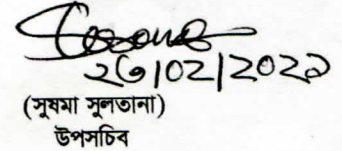 ২৩|০২|২০২১
(সুষমা সুলতানা)
উপসচিব